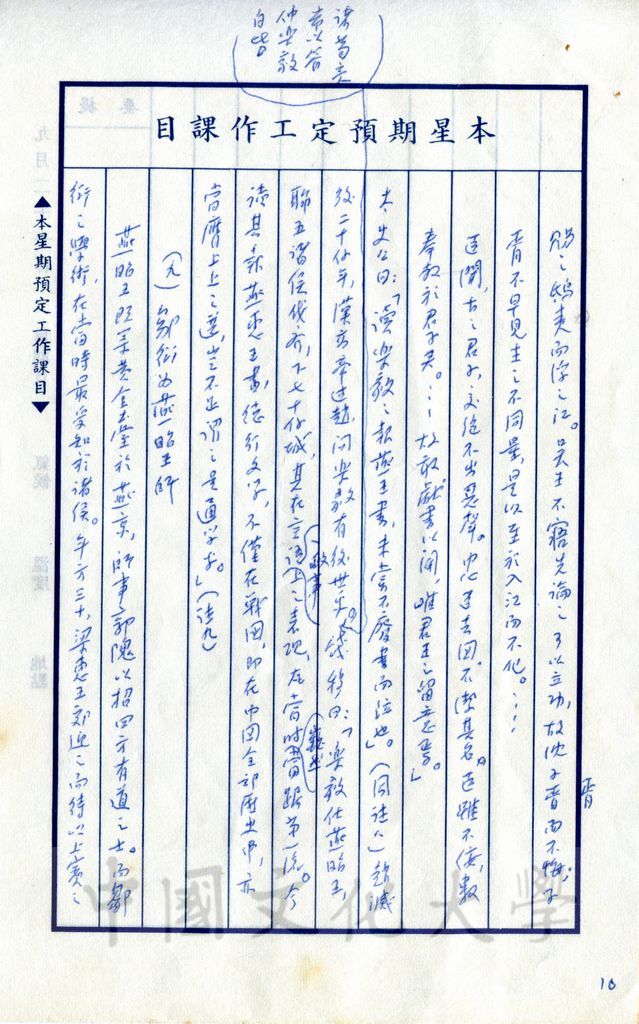 諸葛亮
常以管
仲樂毅
自比
本星期預定工作課目
賜之鴟夷而浮之江。吳王不寤先論之可以立功,故沈子胥而不悔;子
胥
胥不早見主之不同量,是以至於入江而不化。…
臣聞,古之君子,交絕不出惡聲。忠臣去國,不潔其名。臣雖不佞,數
奉教於君子矣。…故敢獻書以聞,唯君王之留意焉。」
太史公曰:「讀樂毅之報燕王書,未嘗不廢書而泣也。」(同註八)趙滅
後二十餘年,漢高帝過趙,問樂毅有後世乎。錢穆曰:「樂毅仕燕昭王,
聯五諸侯伐齊,下七十餘城,其在言語政事上之表現,在當時當踞第一流。今
讀其報燕惠王書,德行文學,不僅在戰國,即在中國全部歷史中,亦
當膺上上之選,豈不正謂之是通學乎。」(註九)
(九)鄒衍為燕昭王師
燕昭王既築黃金臺於燕京,師事郭隗以招四方有道之士。而鄒
衍之學術,在當時最受知於諸侯。年方三十,梁惠王郊迎之而待以上賓之
▲本星期預定工作課目▼
中國文化大學
10